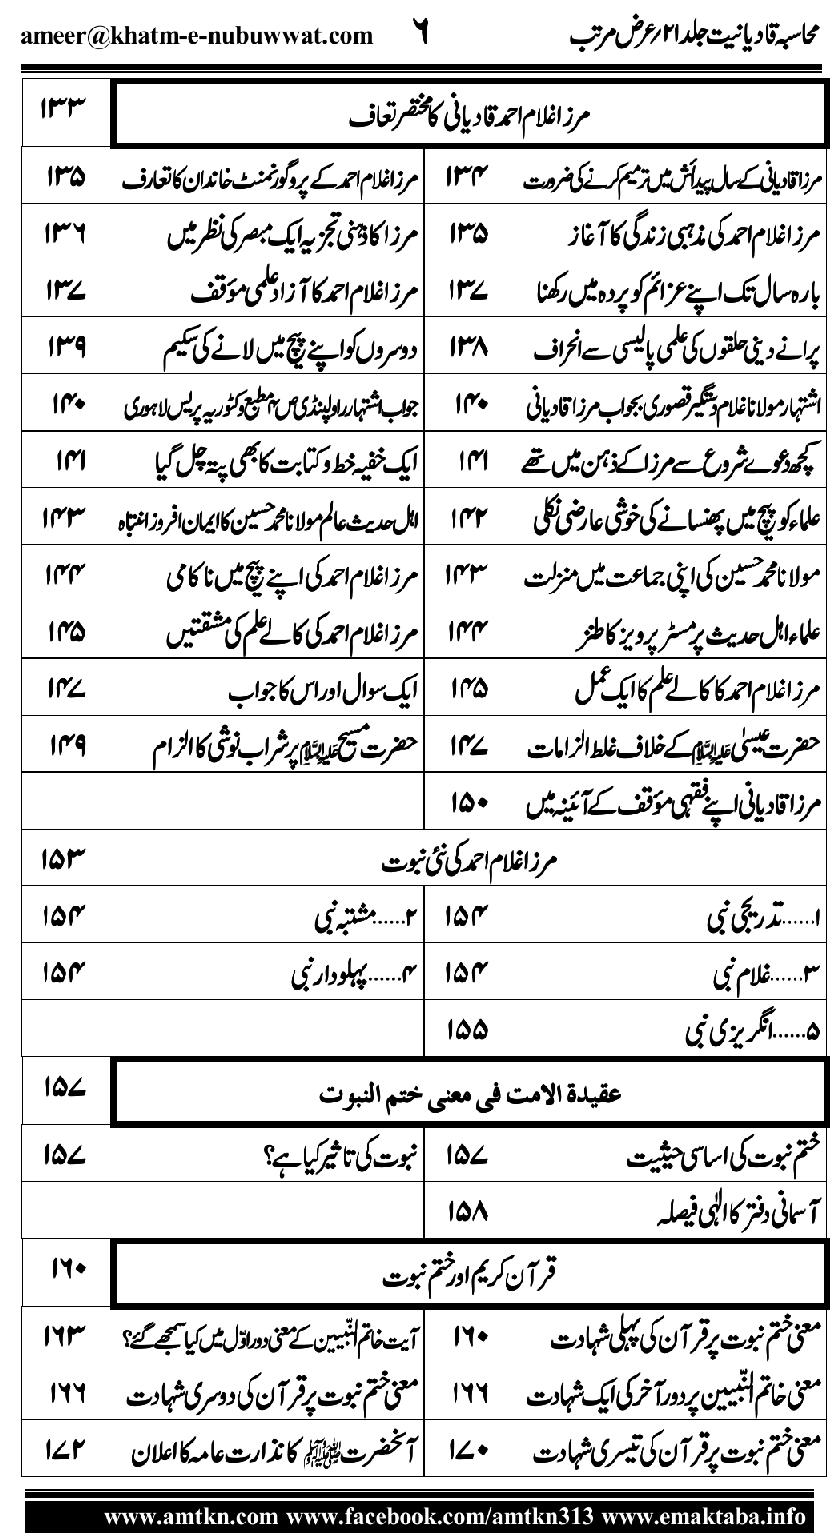 محاسبہ قادیانیت جلد ۲۱ / عرض مرتب ۶ ameer@khatm-e-nubuwwat.com
مرزا غلام احمد قادیانی کا مختصر تعاف ۱۳۳
مرزا قادیانی کے سال پیدائش میں ترمیم کرنے کی ضرورت ۱۳۴ مرزا غلام احمد کے پروگورنمنٹ خاندان کا تعارف ۱۳۵
مرزا غلام احمد کی مذہبی زندگی کا آغاز ۱۳۵ مرزا کا ذہنی تجزیہ ایک مبصر کی نظر میں ۱۳۶
بارہ سال تک اپنے عزائم کو پردہ میں رکھنا ۱۳۷ مرزا غلام احمد کا آزاد علمی مؤقف ۱۳۷
پرانے دینی حلقوں کی علمی پالیسی سے انحراف ۱۳۸ دوسروں کو اپنے پیچ میں لانے کی سکیم ۱۳۹
اشتہار مولانا غلام دستگیر قصوری بجواب مرزا قادیانی ۱۴۰ جواب اشتہار راولپنڈی ص۴ مطبع وکٹوریہ پریس لاہوری ۱۴۰
کچھ دعوے شروع سے مرزا کے ذہن میں تھے ۱۴۱ ایک خفیہ خط و کتابت کا بھی پتہ چل گیا ۱۴۱
علماء کو پیچ میں پھنسانے کی خوشی عارضی نکلی ۱۴۲ اہل حدیث عالم مولانا محمد حسین کا ایمان افروز انتباہ ۱۴۳
مولانا محمد حسین کی اپنی جماعت میں منزلت ۱۴۳ مرزا غلام احمد کی اپنے پیچ میں ناکامی ۱۴۴
علماء اہل حدیث پر مسٹر پرویز کا طنز ۱۴۴ مرزا غلام احمد کی کالے علم کی مشقتیں ۱۴۵
مرزا غلام احمد کا کالے علم کا ایک عمل ۱۴۵ ایک سوال اور اس کا جواب ۱۴۷
حضرت عیسیٰ علیہ السلام کے خلاف غلط الزامات ۱۴۷ حضرت مسیح علیہ السلام پر شراب نوشی کا الزام ۱۴۹
مرزا قادیانی اپنے فقہی مؤقف کے آئینہ میں ۱۵۰
مرزا غلام احمد کی نئی نبوت ۱۵۳
۱......تدریجی نبی ۱۵۴ ۲......مشتبہ نبی ۱۵۴
۳......غلام نبی ۱۵۴ ۴......پہلودار نبی ۱۵۴
۵......انگریزی نبی ۱۵۵
عقیدة الامت فی معنی ختم النبوت ۱۵۷
ختم نبوت کی اساسی حیثیت ۱۵۷ نبوت کی تاثیر کیا ہے؟ ۱۵۷
آسمانی دفتر کا الٰہی فیصلہ ۱۵۸
قرآن کریم اور ختم نبوت ۱۶۰
معنی ختم نبوت پر قرآن کی پہلی شہادت ۱۶۰ آیت خاتم النّبیین کے معنی دور اوّل میں کیا سمجھے گئے؟ ۱۶۳
معنی خاتم النّبیین پر دور آخر کی ایک شہادت ۱۶۶ معنی ختم نبوت پر قرآن کی دوسری شہادت ۱۶۶
معنی ختم نبوت پر قرآن کی تیسری شہادت ۱۷۰ آنحضرت ﷺ کا نذارت عامہ کا اعلان ۱۷۲
www.amtkn.com www.facebook.com/amtkn313 www.emaktaba.info